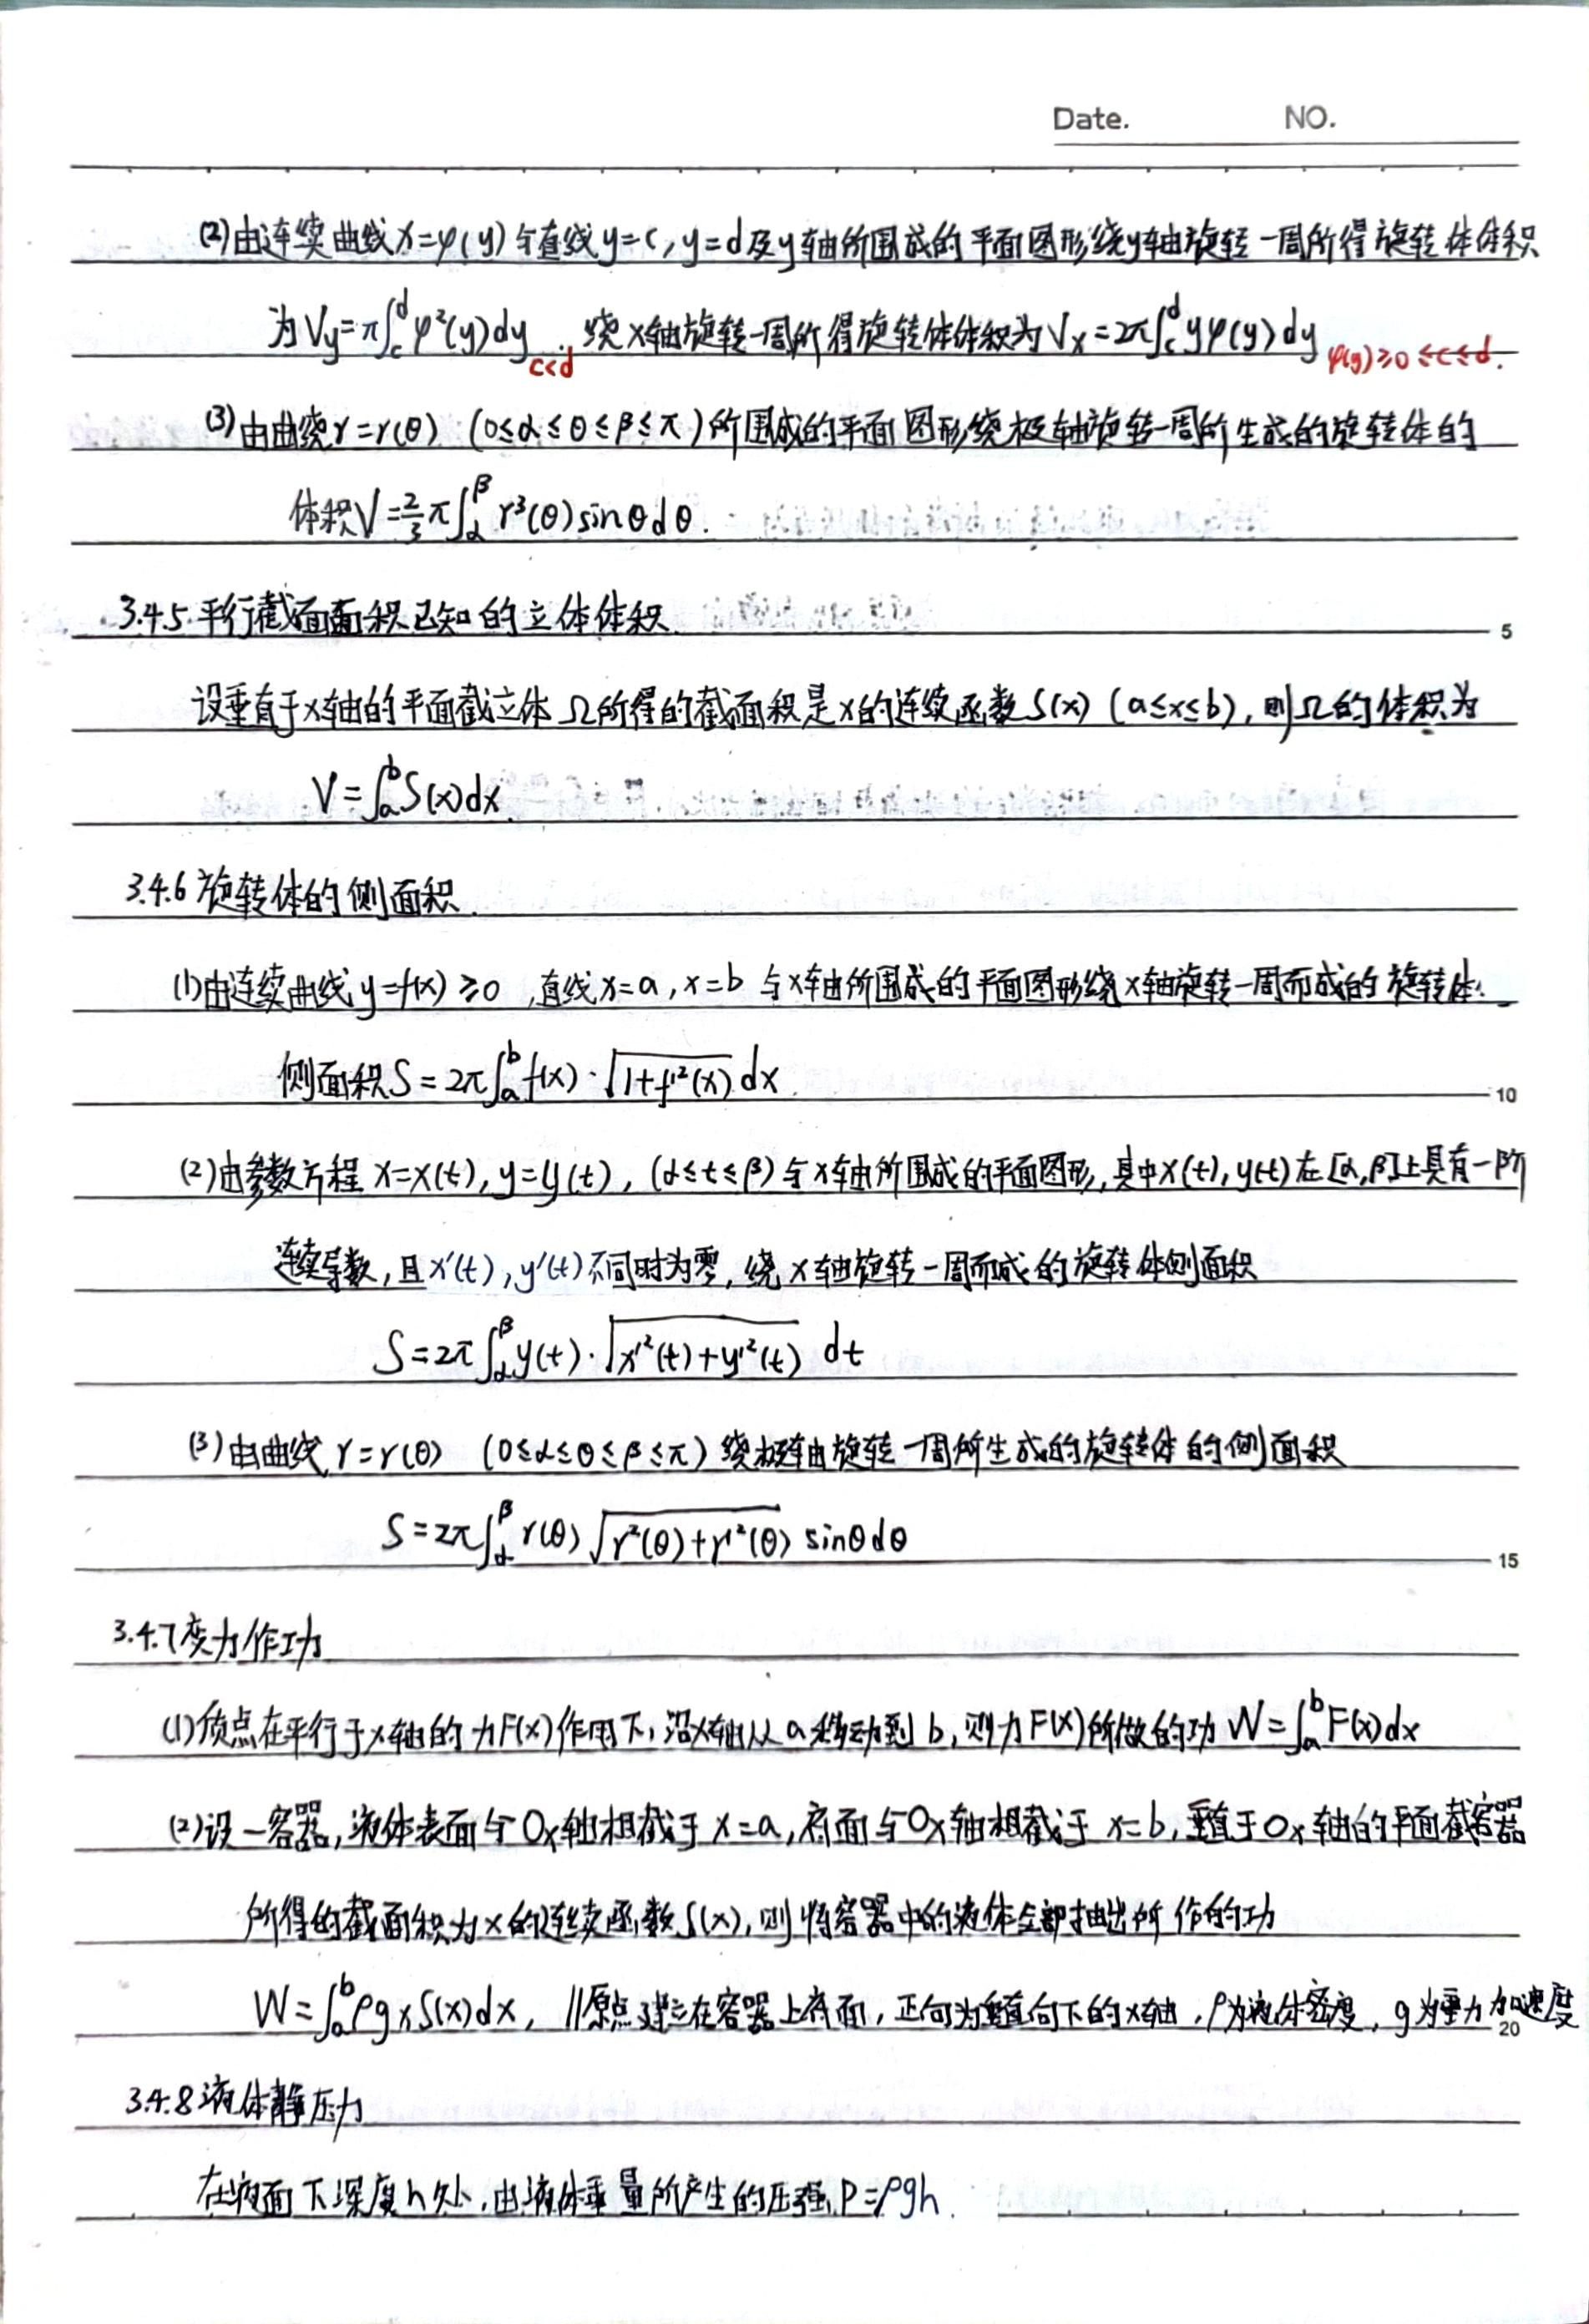 Date. NO.
(2)由连续曲线x=φ(y)与直线y=c,y=d及y轴所围成的平面图形绕y轴旋转一周所得旋转体体积
为Vy=π∫_c^d φ²(y)dy c<d. 绕x轴旋转一周所得旋转体体积为Vx=2π∫_c^d yφ(y)dy φ(y)≥0 ≤c≤d.
(3)由曲绕r=r(θ) (0≤α≤θ≤β≤π)所围成的平面图形绕极轴旋转一周所生成的旋转体的
体积V=2/3 π∫_α^β r³(θ)sinθdθ.
3.4.5.平行截面面积已知的立体体积. 5
设垂直于x轴的平面截立体Ω所得的截面积是x的连续函数S(x) (a≤x≤b),则Ω的体积为
V=∫_a^b S(x)dx.
3.4.6旋转体的侧面积.
(1)由连续曲线y=f(x)≥0,直线x=a,x=b与x轴所围成的平面图形绕x轴旋转一周而成的旋转体.
侧面积S=2π∫_a^b f(x)·√(1+f'²(x)) dx. 10
(2)由参数方程x=x(t),y=y(t),(α≤t≤β)与x轴所围成的平面图形,其中x(t),y(t)在[α,β]上具有一阶
连续导数,且x'(t),y'(t)不同时为零,绕x轴旋转一周而成的旋转体侧面积
S=2π∫_α^β y(t)·√(x'²(t)+y'²(t)) dt
(3)由曲线r=r(θ) (0≤α≤θ≤β≤π)绕极轴旋转一周所生成的旋转体的侧面积
S=2π∫_α^β r(θ)√(r²(θ)+r'²(θ)) sinθdθ 15
3.4.7变力作功
(1)质点在平行于x轴的力F(x)作用下,沿x轴从a移动到b,则力F(x)所做的功W=∫_a^b F(x)dx
(2)设一容器,液体表面与Ox轴相截于x=a,底面与Ox轴相截于x=b,垂直于Ox轴的平面截容器
所得的截面积为x的连续函数S(x),则将容器中的液体全部抽出所作的功
W=∫_a^b ρgxS(x)dx, //原点建立在容器上底面,正向为垂直向下的x轴,ρ为液体密度,g为重力加速度 20
3.4.8液体静压力
在液面下深度h处,由液体重量所产生的压强P=ρgh.